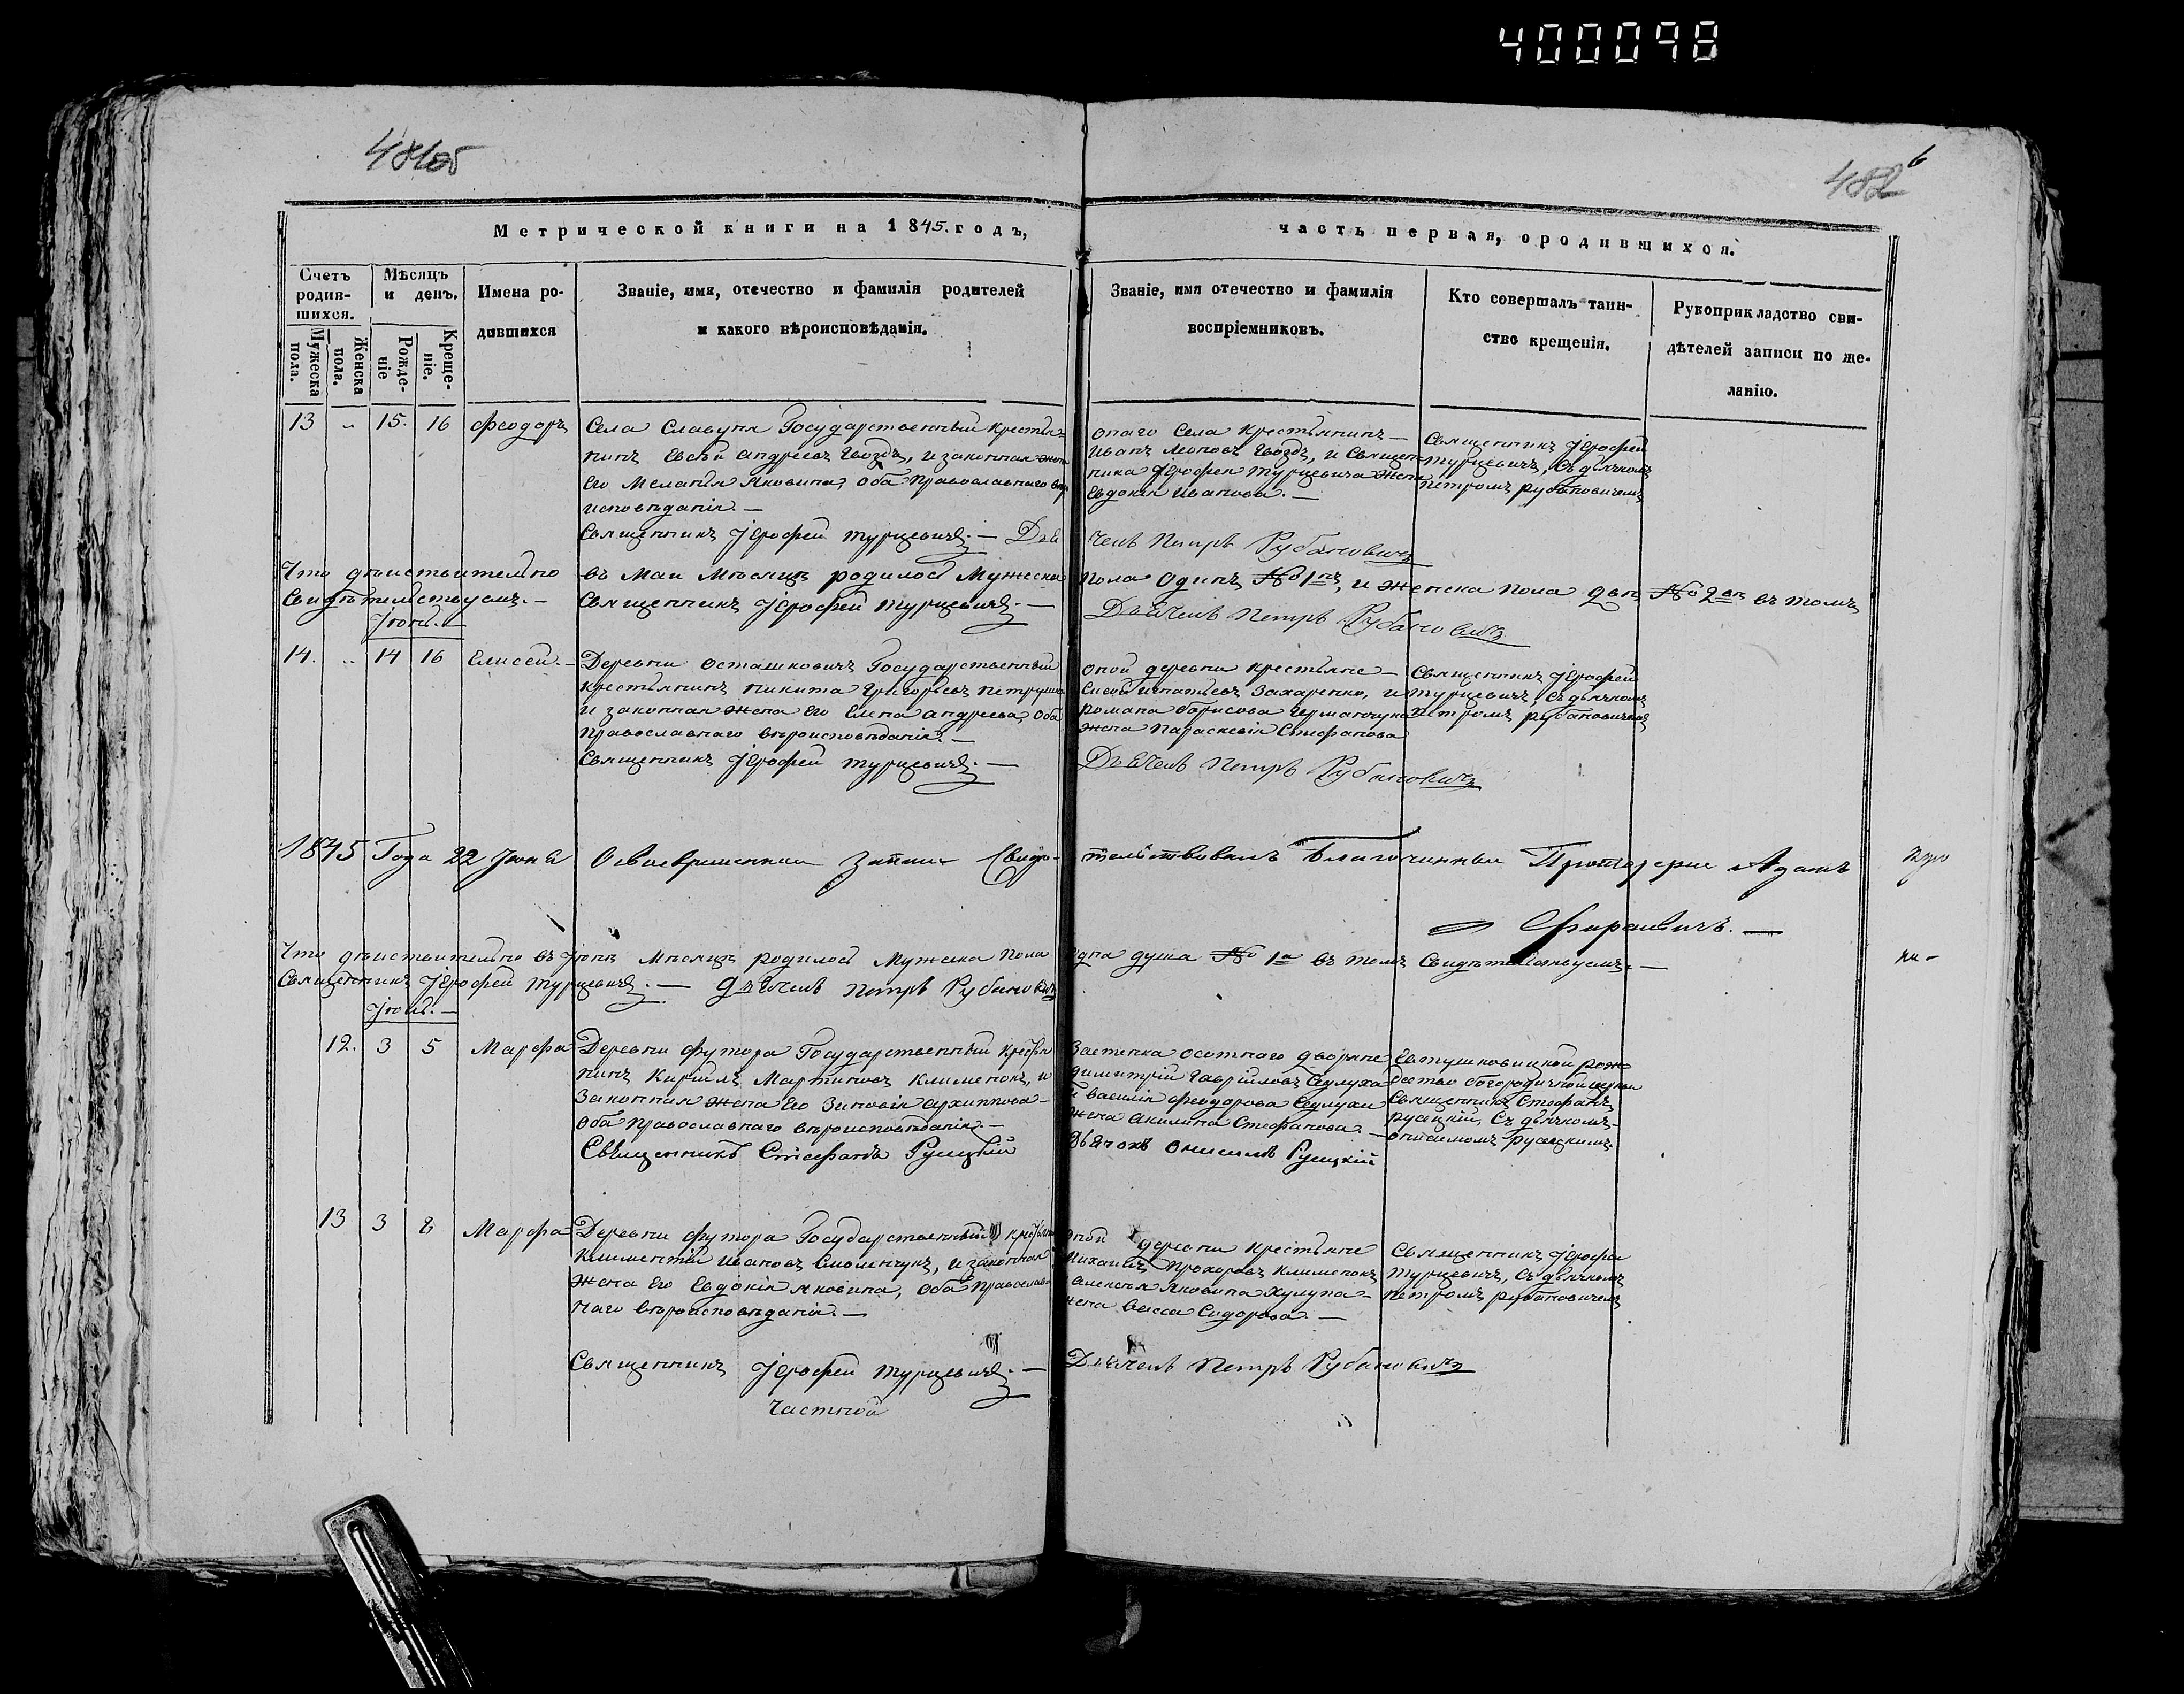 400098
481об
482
6
Метрической книги на 1845. годъ,
часть первая, ородившихся.
Счетъ родив-шихся.
Мѣсяцъ и день.
Имена ро-дившихся
Званіе, имя, отечество и фамилія родителей
и какого вѣроисповѣданія.
Званіе, имя отечество и фамилія
воспріемниковъ.
Кто совершалъ таин-
ство крещенія.
Рукоприкладство сви-
дѣтелей записи по же-
ланію.
Мужеска пола.
Женска пола.
Рожде-ніе
Креще-ніе.
13 „ 15. 16 Феодоръ
Села Славуня Государственный крестья=
нинъ Евсѣй Андреевъ Гвоздь, и законная жена
Его Меланія Яковина, оба Православнаго вѣро
исповѣданія. —
Священникъ Іерофей Турцевичъ. — Дья
онаго Села крестьянинъ —
Иванъ Леоновъ Гвоздь, и Священ-
ника Іерофея Турцевича жена
Евдокія Иванова. —
чекъ Петръ Рубановичъ
Священникъ Іерофей
Турцевичъ, съ дьячкомъ
Петромъ Рубановичемъ
Что дѣйствительно въ Маи Мѣсяцѣ родилось Мужеска пола одинъ № 1нъ, и женска пола двѣ № 2вѣ въ томъ
Свидѣтельствуемъ. — Священникъ Іерофей Турцевичъ. — Дьячекъ Петръ Рубановичъ
Іюнь. —
14. „ 14 16 Елисей. —
Деревни Осташковичъ Государственный
крестьянинъ Никита Григорьевъ Петруша
и законная жена Его Елена Андреева, оба
Православнаго вѣроисповѣданія. —
Священникъ Іерофей Турцевичъ. —
оной деревни крестьяне —
Игнатьевъ Захаренко, и
Романа Борисова
жена Параскевія Стефанова
Дьячекъ Петръ Рубановичъ
Священникъ Іерофей
Турцевичъ, съ дьячкомъ
Петромъ Рубановичемъ
1845 Года 22 Іюня Освоевременной записи Свидѣ-тельствовалъ Благочинный Протоіерей Адамъ
Что дѣйствительно въ Іюнѣ Мѣсяцѣ родилось Мужеска пола одна душа № 1а въ томъ Свидѣтельствуемъ. —
Священникъ Іерофей Турцевичъ. — Дьячекъ Петръ Рубановичъ
Іюль. —
12. 3 5 Марфа
Деревни Футора Государственный крестья
нинъ Кирилъ Мартиновъ Клименокъ, и
Законная жена Его Зиновія Архиппова —
оба Православнаго вѣроисповѣданія. —
Священникъ Стефанъ Русецкій
Застенка Осотнаго дворяне
Димитрій Гавриловъ Сулуха
и Василія Феодорова Сулухи
жена Акилина Стефанова. —
Дьячокъ Онисимъ Русецкій
Евтушковицкой рож-
дество богородичной церкви
Священникъ Стефанъ
Русецкій, съ дьячкомъ —
онисимомъ Русецкимъ.
13 3 8 Марфа
Деревни Футора Государственный крестьян
Климентій Ивановъ Смоленчукъ, и законная
жена Его Евдокія Яковина, оба Православ
наго вѣроисповѣданія. —
Священникъ Іерофей Турцевичъ. —
Частной
оной деревни крестьяне
Михаилъ Прохоровъ Клименокъ
Алексѣя Яковина Хулупа —
жена Васса Сидорова. —
Дьячекъ Петръ Рубановичъ
Священникъ Іерофей
Турцевичъ, съ дьячкомъ
Петромъ Рубановичемъ